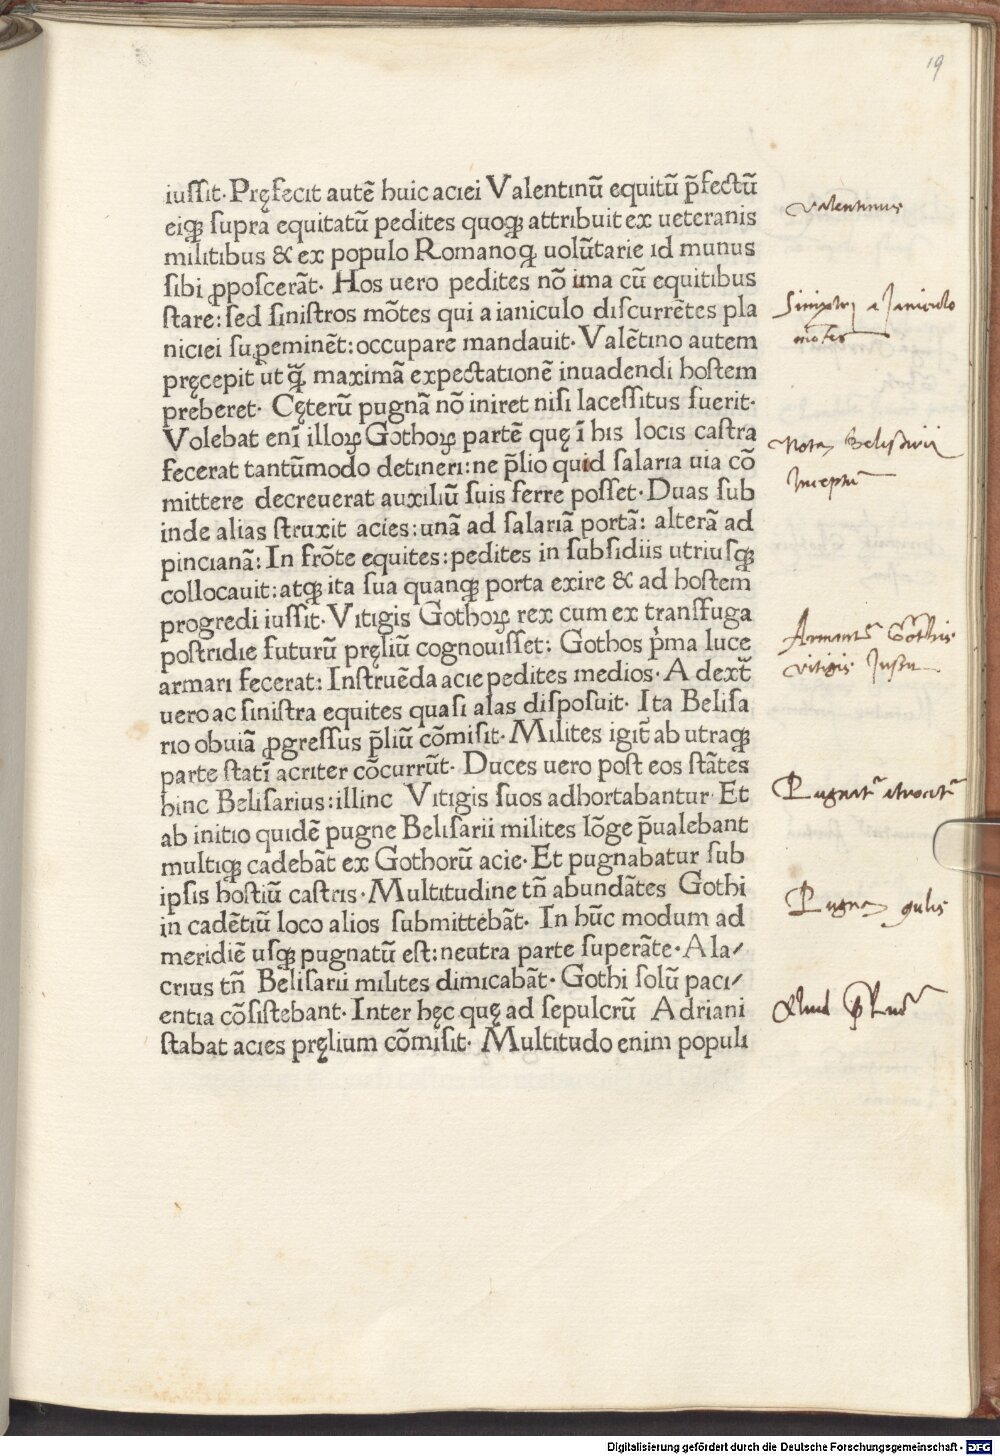 19
iussit· Pręfecit autē huic aciei Valentinū equitū p̄fectū
eiqꝫ supra equitatū pedites quoqꝫ attribuit ex ueteranis
militibus & ex populo Romanoqꝫ uolūtarie id munus
sibi ꝓposcerāt· Hos uero pedites nō ima cū equitibus
stare: sed sinistros mōtes qui a ianiculo discurrētes pla
niciei suꝑeminēt: occupare mandauit· Valētino autem
pręcepit ut ꝙ̄ maximā expectationē inuadendi hostem
preberet· Cęterū pugnā nō iniret nisi lacessitus fuerit·
Volebat enī illoꝝ Gothoꝝ partē quę ī his locis castra
fecerat tantūmodo detineri: ne p̄lio quid salaria uia cō
mittere decreuerat auxiliū suis ferre posset· Duas sub
inde alias struxit acies: unā ad salariā portā: alterā ad
pincianā: In frōte equites: pedites in subsidiis utriusqꝫ
collocauit: atqꝫ ita sua quanqꝫ porta exire & ad hostem
progredi iussit· Vitigis Gothoꝝ rex cum ex transfuga
postridie futurū pręliū cognouisset: Gothos pͥma luce
armari fecerat: Instruēda acie pedites medios· A dext̄
uero ac sinistra equites quasi alas disposuit· Ita Belisa
rio obuiā ꝓgressus p̄liū cōmisit· Milites igit̄ ab utraqꝫ
parte statī acriter cōcurrūt· Duces uero post eos stātes
hinc Belisarius: illinc Vitigis suos adhortabantur· Et
ab initio quidē pugne Belisarii milites lōge p̄ualebant
multiqꝫ cadebāt ex Gothorū acie· Et pugnabatur sub
ipsis hostiū castris· Multitudine tn̄ abundātes Gothi
in cadētiū loco alios submittebāt· In hūc modum ad
meridiē usqꝫ pugnatū est: neutra parte superāte· Ala/
crius tn̄ Belisarii milites dimicabāt· Gothi solū paci/
entia cōsistebant· Inter hęc quę ad sepulcrū Adriani
stabat acies pręlium cōmisit· Multitudo enim populi
valentinus
Sinistri a Janiculo
mōtes
Nota Belisarii
Inceptū
Armant̄ Gothis
vitigis Jussu
Pugnat̄ atrocit̄
Pugna
Aliud p̄liū
Digitalisierung gefördert durch die Deutsche Forschungsgemeinschaft - DFG